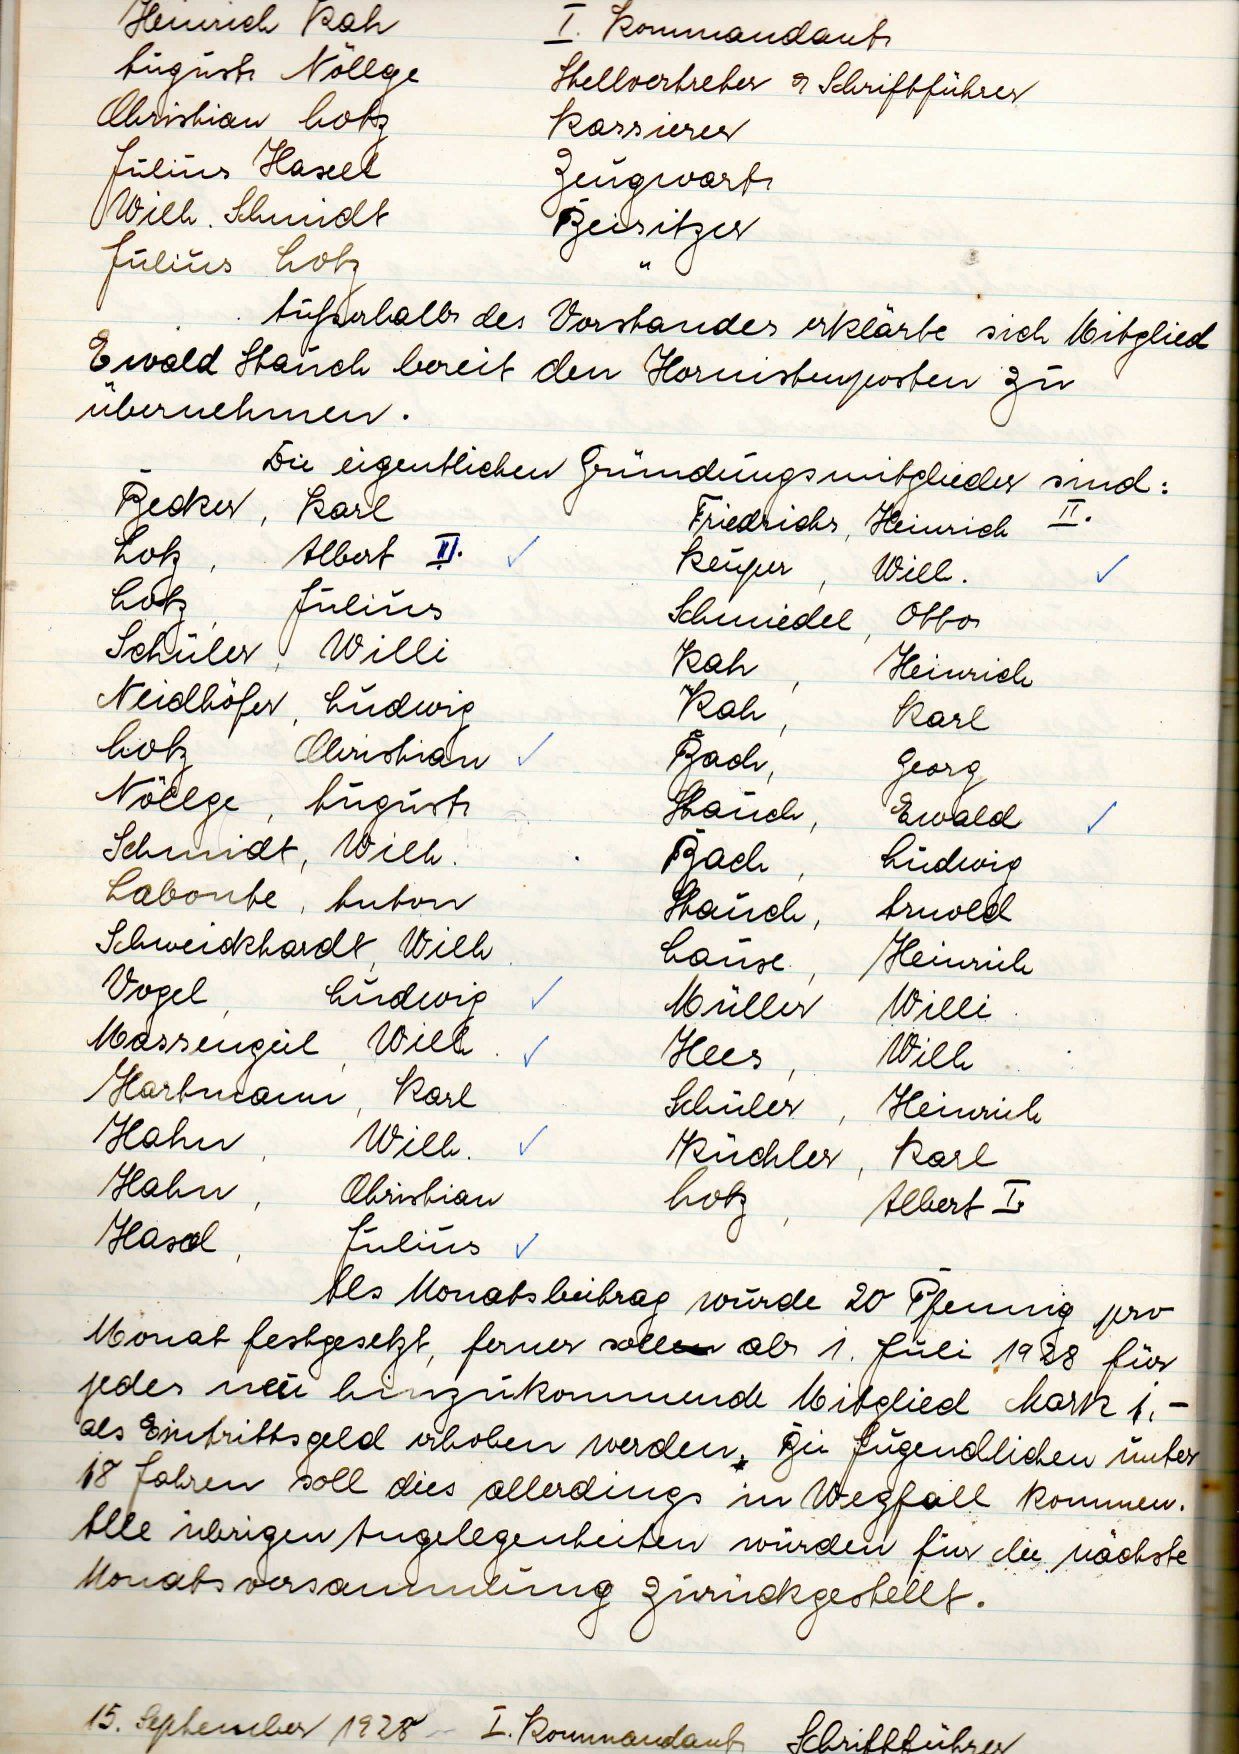 Heinrich Kah I. Kommandant
August Nöllge Stellvertreter & Schriftführer
Christian Lotz Kassierer
Julius Hasel Zeugwart
Wilh. Schmidt Beisitzer
Julius Lotz "
Außerhalb des Vorstandes erklärte sich Mitglied
Ewald Stauch bereit den Hornistenposten zu
übernehmen.
Die eigentlichen Gründungsmitglieder sind:
Becker, Karl Friedrichs, Heinrich II.
Lotz, Albert III. ✓ Keuper, Wilh. ✓
Lotz, Julius Schmiedel, Otto
Schüler, Willi Kah, Heinrich
Neidhöfer, Ludwig Kah, Karl
Lotz Christian ✓ Bach, Georg
Nöllge, August Stauch, Ewald ✓
Schmidt, Wilh. Bach, Ludwig
Labonte, Anton Stauch, Arnold
Schweickhardt, Wilh. Lause, Heinrich
Vogel, Ludwig ✓ Müller Willi
Massengeil, Wilh. ✓ Hees, Wilh
Hartmann, Karl Schüler, Heinrich
Hahn, Wilh. ✓ Küchler, Karl
Hahn, Christian Lotz, Albert I.
Hasel, Julius ✓
Als Monatsbeitrag wurde 20 Pfennig pro
Monat festgesetzt, ferner sollen ab 1. Juli 1928 für
jedes neu hinzukommende Mitglied Mark 1.-
als Eintrittsgeld erhoben werden. Bei Jugendlichen unter
18 Jahren soll dies allerdings in Wegfall kommen.
Alle übrigen Angelegenheiten wurden für die nächste
Monatsversammlung zurückgestellt.
15. September 1928 I. Kommandant Schriftführer